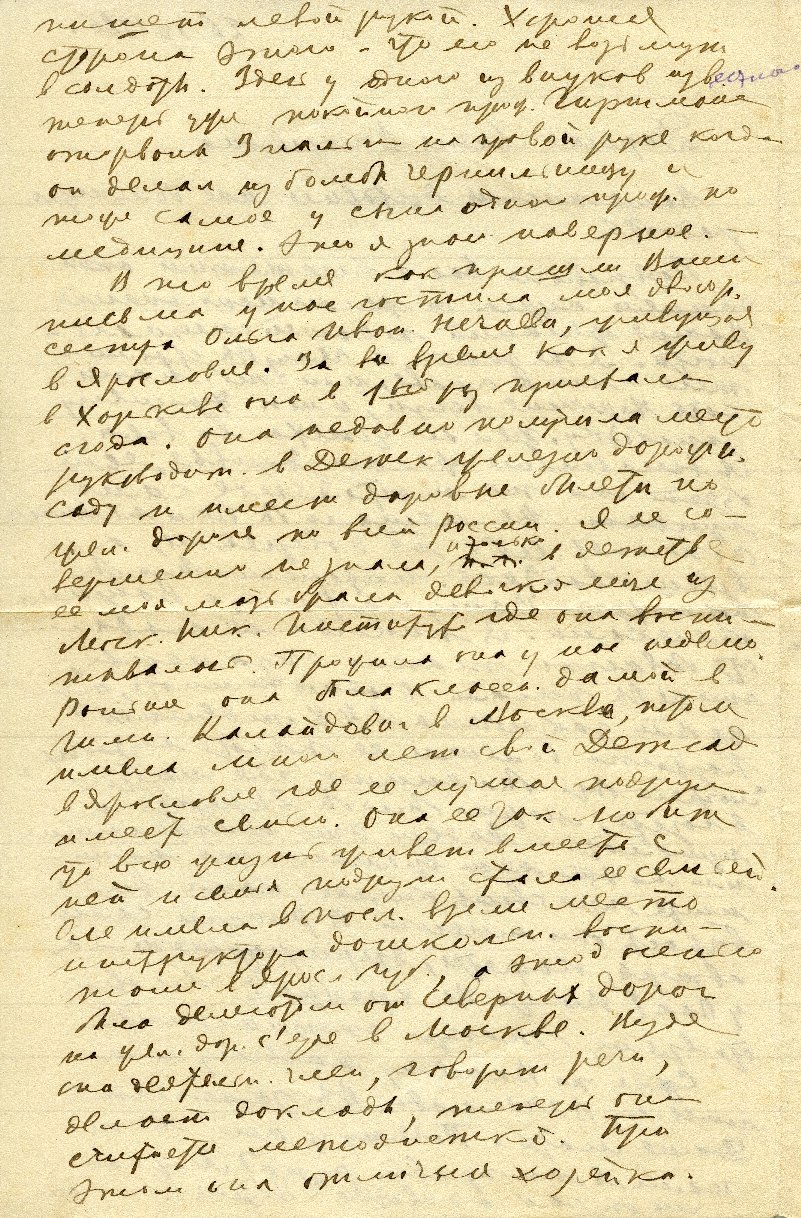 пишет левой рукой. Хорошая
сторона этого – что его не возьмут
в солдаты. Здесь у одного из внуков изв
естно
теперь уже покойного проф. Гиршмана
оторваны 3 пальца на правой руке когда
он делал из бомбы чернильницу и
тоже самое у сына одного проф. по
медицине. Это я знаю наверное. –
В то время как пришли Ваши
письма у нас гостила моя двоюр.
сестра Ольга Иван. Нечаева, живущая
в Ярославле. За все время как я живу
в Харькове она в 1ый раз приехала
сюда. Она недавно получила место
руководит. в Детск железно дорожн.
саду и имеет даровые билеты по
жел. дороге по всей России. Я ее со–
вершенно не знала, и только в детстве
ее моя мать брала девочкой из
Моск. Ник. Института где она воспи–
тывалась. Прожила она у нас неделю.
Раньше она была классн. дамой в
гимн. Калайдович в Москве, потом
имела много лет свой Детсад
в Ярославле где ее лучшая подруга
имеет школу. Она ее так любит
что всю жизнь живет вместе с
ней и семья подруги стала ее семьей.
Оле имела в посл. время место
инструктора дошкольн. воспи–
тания в Яросл губ., а этой осенью
была делегатом от Северных дорог
на жел. дор. с'езде в Москве. Везде
она деятельн. член, говорит речи,
делает доклады, теперь она
считается методисткой. При
этом она отличная хозяйка.